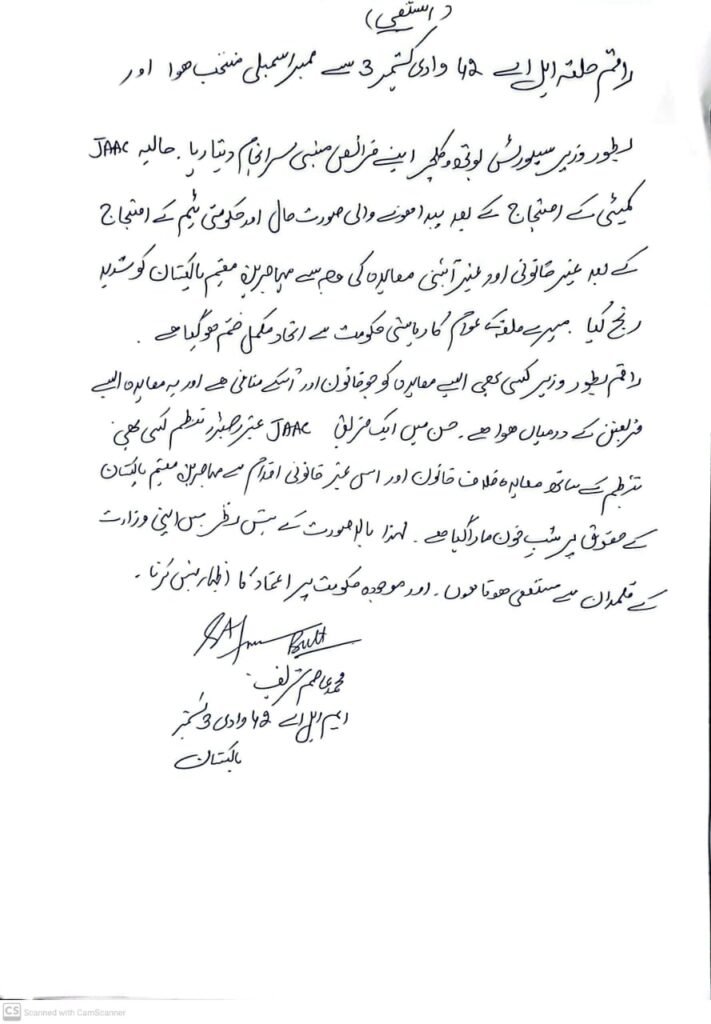 (استعفیٰ)
راقم حلقہ ایل اے 42 وادی کشمیر 3 سے ممبر اسمبلی منتخب ہوا اور
بطور وزیر سپورٹس یوتھ و کلچر اپنے فرائض منصبی سرانجام دیتا رہا. حالیہ JAAC
کمیٹی کے احتجاج کے بعد پیدا ہونے والی صورت حال اور حکومتی ٹیم کے احتجاج
کے بعد غیر قانونی اور غیر آئینی معاہدہ کی وجہ سے مہاجرین مقیم پاکستان کو شدید
رنج گیا. میرے حلقہ کے عوام کا ریاستی حکومت سے اعتماد مکمل ختم ہو گیا ہے.
راقم بطور وزیر کسی بھی ایسے معاہدہ کو جو قانون اور کے منافی ہے اور یہ معاہدہ ایسے
فریقین کے درمیان ہوا ہے. جس میں ایک فریق JAAC غیر رجسٹرڈ تنظیم کسی بھی
تنظیم کے ساتھ معاہدہ خلاف قانون اور اس غیر قانونی اقدام سے مہاجرین مقیم پاکستان
کے حقوق پر شب خون مارا گیا ہے. لہذا بالا صورت کے پیش نظر میں اپنی وزارت
کے قلمدان سے مستعفی ہوتا ہوں. اور موجودہ حکومت پر اعتماد کا اظہار نہیں کرتا.
Butt
محمد عاصم شریف
ایم ایل اے 42 وادی 3 کشمیر
پاکستان
CS Scanned with CamScanner